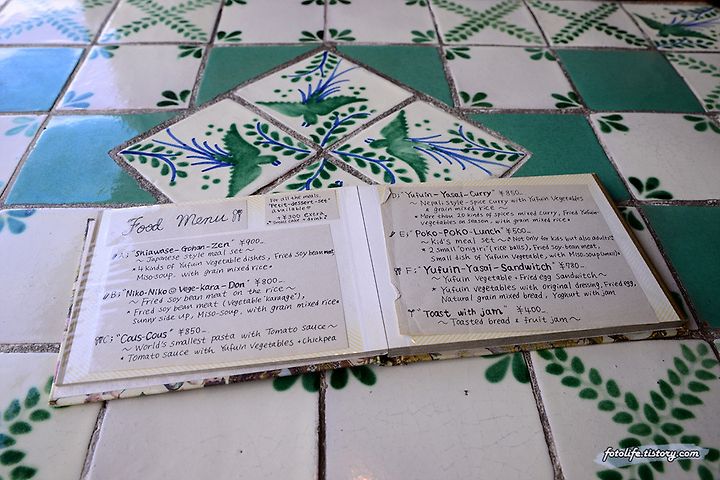 Food Menu
For all the meals,
"Petit-dessert-set"
available
¥300 extra
* small cake + drink *
A: "Shiawase-Gohan-Zen" ¥900_
~ Japanese style meal set ~
* 4 kinds of Yufuin Vegetable dishes, Fried Soy bean meat,
Miso-soup, with grain mixed rice *
B: "Niko-Niko Vege-kara-Don" ¥800_
~ Fried Soy bean meat on the rice ~
* Fried Soy bean meat (Vegetable "karaage"),
sunny side up, Miso-soup, with grain mixed rice *
C: "Cous-Cous" ¥850_
~ World's smallest pasta with Tomato sauce ~
* Tomato sauce with Yufuin Vegetables + chickpea
D: "Yufuin-Yasai-Curry" ¥850_
~ Nepali Style-Spice Curry with Yufuin Vegetables
+ grain mixed rice ~
* More than 20 kinds of spices mixed curry, Fried Yufuin-
Vegetables on season, with grain mixed rice *
E: "Poko-Poko-Lunch" ¥500_
~ Kid's meal set ~ Not only for kids but also adults!
* 2 small "Onigiri" (rice balls), Fried Soy bean meat,
Small dish of Yufuin Vegetable, with Miso-soup (small)
F: "Yufuin-Yasai-Sandwitch" ¥780_
~ Yufuin Vegetable + Fried egg Sandwitch ~
* Yufuin Vegetables with original dressing, Fried egg,
Natural grain mixed bread, Yoghurt with jam
"Toast with jam" ¥400_
~ Toasted bread & fruit jam ~
fotolife.tistory.com